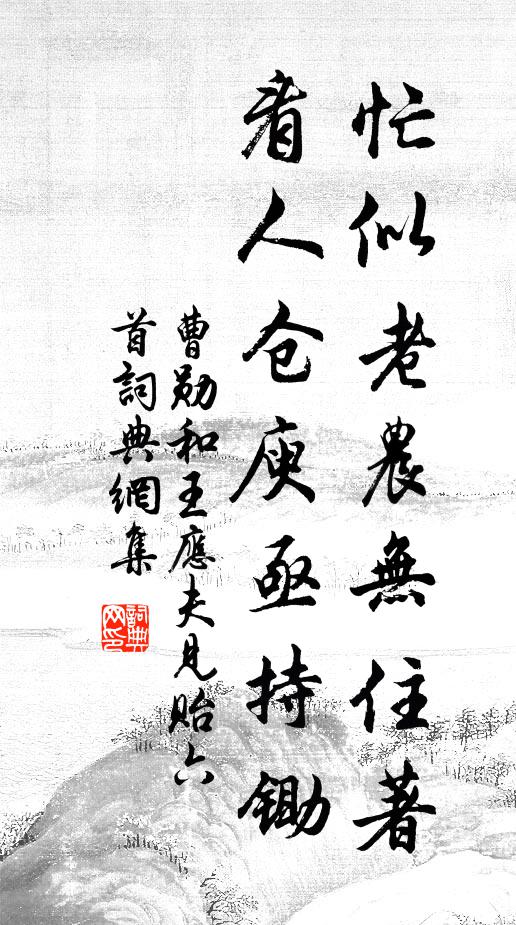 忙似老農無住著
看人仓庾亟持鋤
曹勛和王應夫見貽六
首詞典網集
詞典
网印